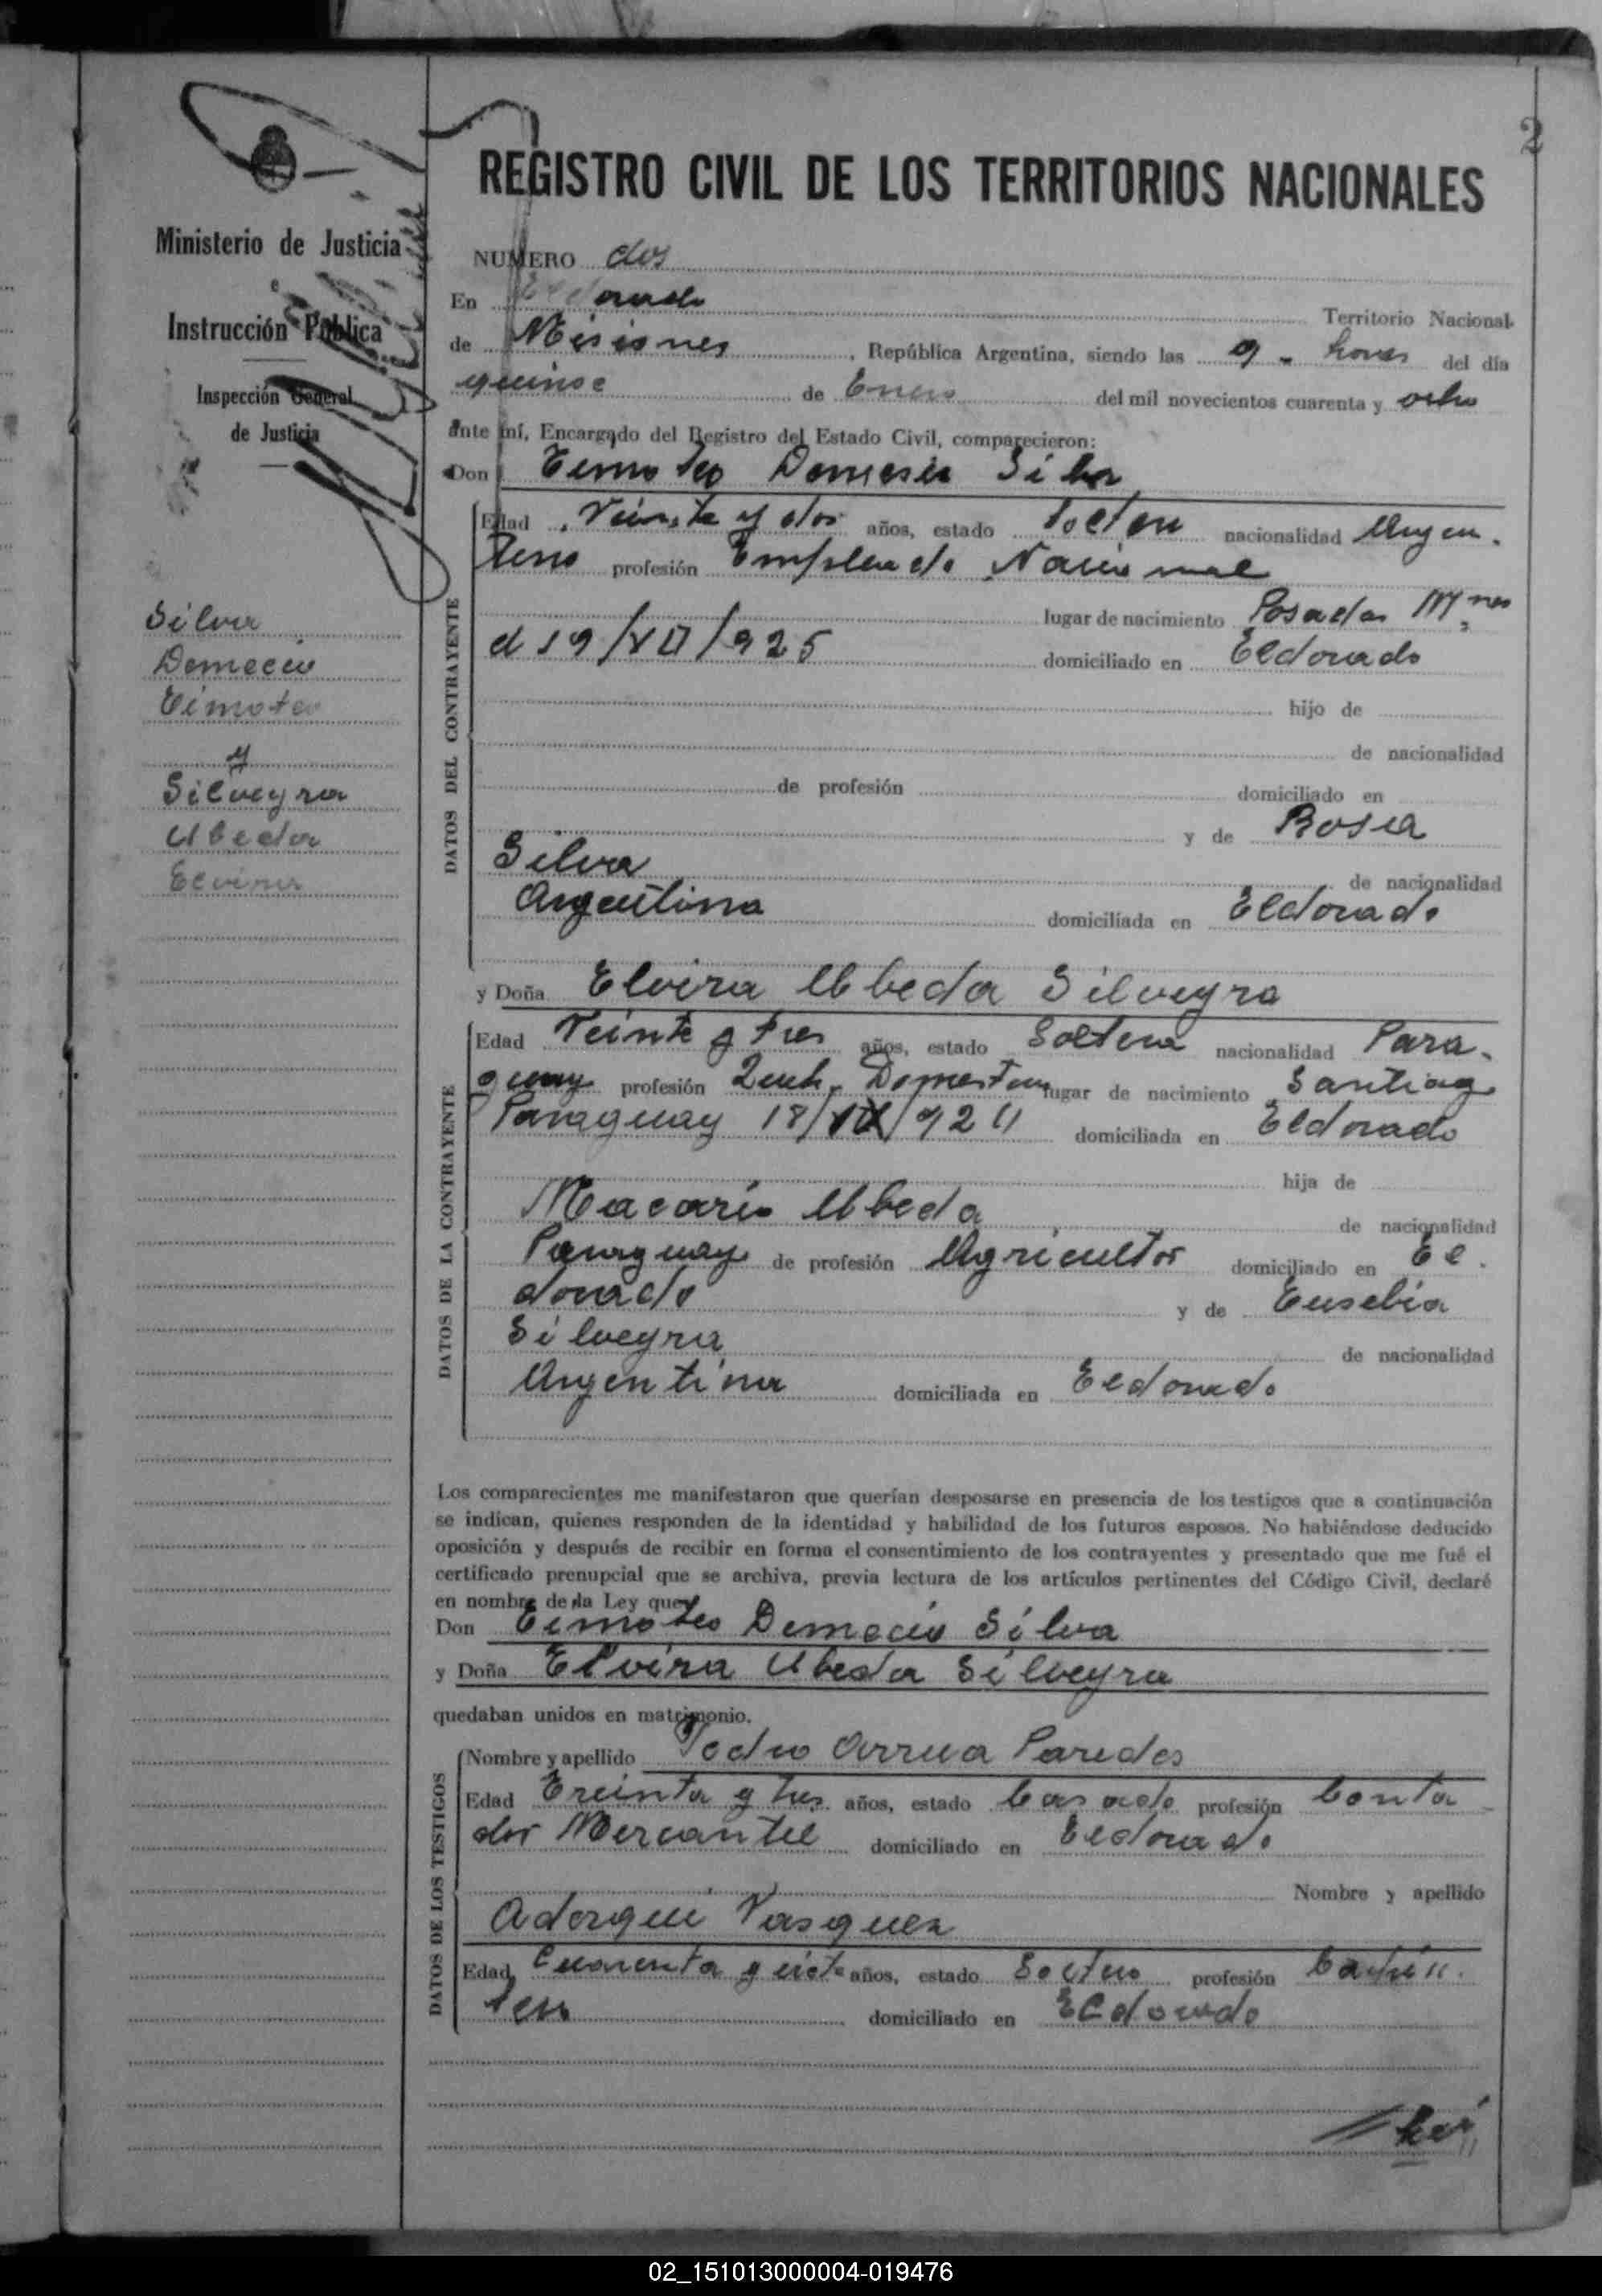 2
REGISTRO CIVIL DE LOS TERRITORIOS NACIONALES
Ministerio de Justicia
e
Instrucción Pública
Inspección General
de Justicia
Silva
Demecio
Timoteo
y
Silveyra
Ubeda
Elvira
NUMERO dos
En Eldorado Territorio Nacional
de Misiones, República Argentina, siendo las 9 - horas del día
quinse de Enero del mil novecientos cuarenta y ocho
ante mí, Encargado del Registro del Estado Civil, comparecieron:
Don Timoteo Demesio Silva
DATOS DEL CONTRAYENTE
Edad Veinte y dos años, estado soltero nacionalidad Argen-
tino profesión Empleado Nacional
lugar de nacimiento Posadas Mnes
d 19/XII/925 domiciliado en Eldorado
hijo de
de nacionalidad
de profesión domiciliado en
y de Rosa
Silva de nacionalidad
Argentina domiciliada en Eldorado
y Doña Elvira Ubeda Silveyra
DATOS DE LA CONTRAYENTE
Edad Veinte y tres años, estado Soltera nacionalidad Para-
guay profesión lugar de nacimiento Santiago
Paraguay 18/ /924 domiciliada en Eldorado
hija de
Macario Ubeda de nacionalidad
Paraguay de profesión Agricultor domiciliado en El-
dorado y de Eusebia
Silveyra de nacionalidad
Argentina domiciliada en Eldorado
Los comparecientes me manifestaron que querían desposarse en presencia de los testigos que a continuación
se indican, quienes responden de la identidad y habilidad de los futuros esposos. No habiéndose deducido
oposición y después de recibir en forma el consentimiento de los contrayentes y presentado que me fué el
certificado prenupcial que se archiva, previa lectura de los artículos pertinentes del Código Civil, declaré
en nombre de la Ley que
Don Timoteo Demecio Silva
y Doña Elvira Ubeda Silveyra
quedaban unidos en matrimonio.
DATOS DE LOS TESTIGOS
Nombre y apellido Pedro Arrua Paredes
Edad Treinta y tres años, estado Casado profesión Conta-
dor Mercantil domiciliado en Eldorado
Nombre y apellido
Vasquez
Edad Cuarenta y siete años, estado Soltero profesión
domiciliado en Eldorado
02_151013000004-019476